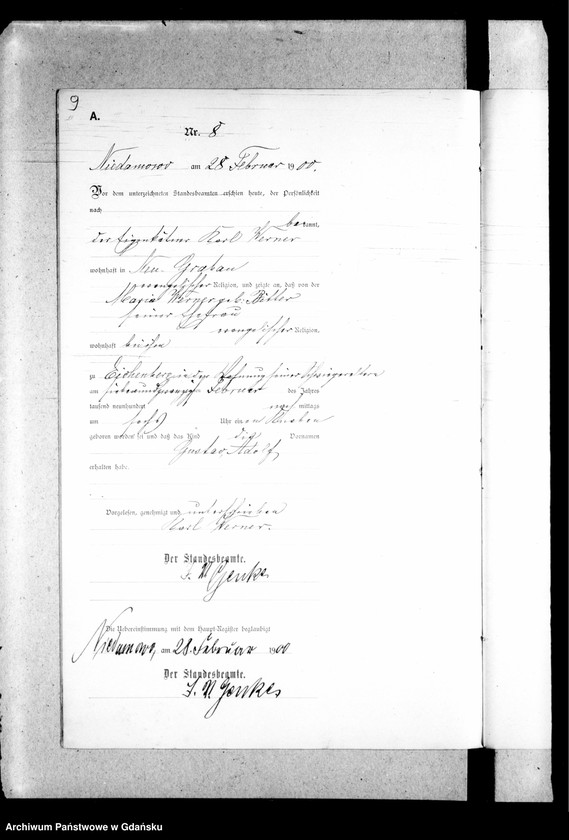 9
A.
Nr. 8
Niedamowo am 28 Februar 1900.
Vor dem unterzeichneten Standesbeamten erschien heute, der Persönlichkeit
nach
bekannt,
der Eigenthümer Karl Werner
wohnhaft in Neu Grabau
evangelischer Religion, und zeigte an, daß von der
Maria Werner geb. Ritter
seiner Ehefrau
evangelischer Religion,
wohnhaft bei ihm
zu in der Wohnung seiner Schwiegereltern
am siebenundzwanzigsten Februar des Jahres
tausend neunhundert nach mittags
um sechs Uhr ein Knaben
geboren worden sei und daß das Kind die Vornamen
Gustav Adolf
erhalten habe.
Vorgelesen, genehmigt und unterschrieben
Karl Werner.
Der Standesbeamte.
Die Uebereinstimmung mit dem Haupt-Register beglaubigt
Niedamowo, am 28. Februar 1900
Der Standesbeamte.
Archiwum Państwowe w Gdańsku